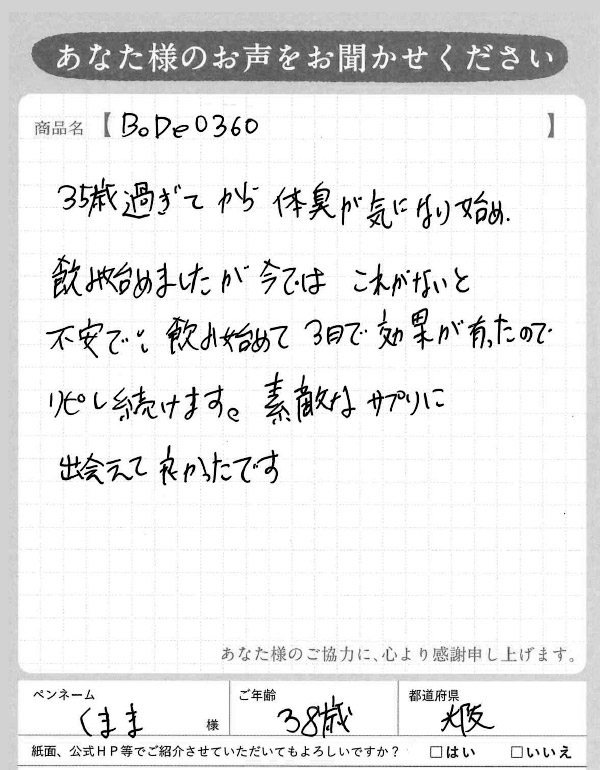 あなた様のお声をお聞かせください
商品名 【 BoDe0360 】
35歳過ぎてから 体臭が気になり始め.
飲み始めましたが今では これがないと
不安で。飲み始めて 3日で効果が有ったので
リピし続けます。素敵な サプリに
出会えて良かったです
あなた様のご協力に、心より感謝申し上げます。
ペンネーム ご年齢 都道府県
くまま 様 38歳 大阪
紙面、公式HP等でご紹介させていただいてもよろしいですか? □はい □いいえ